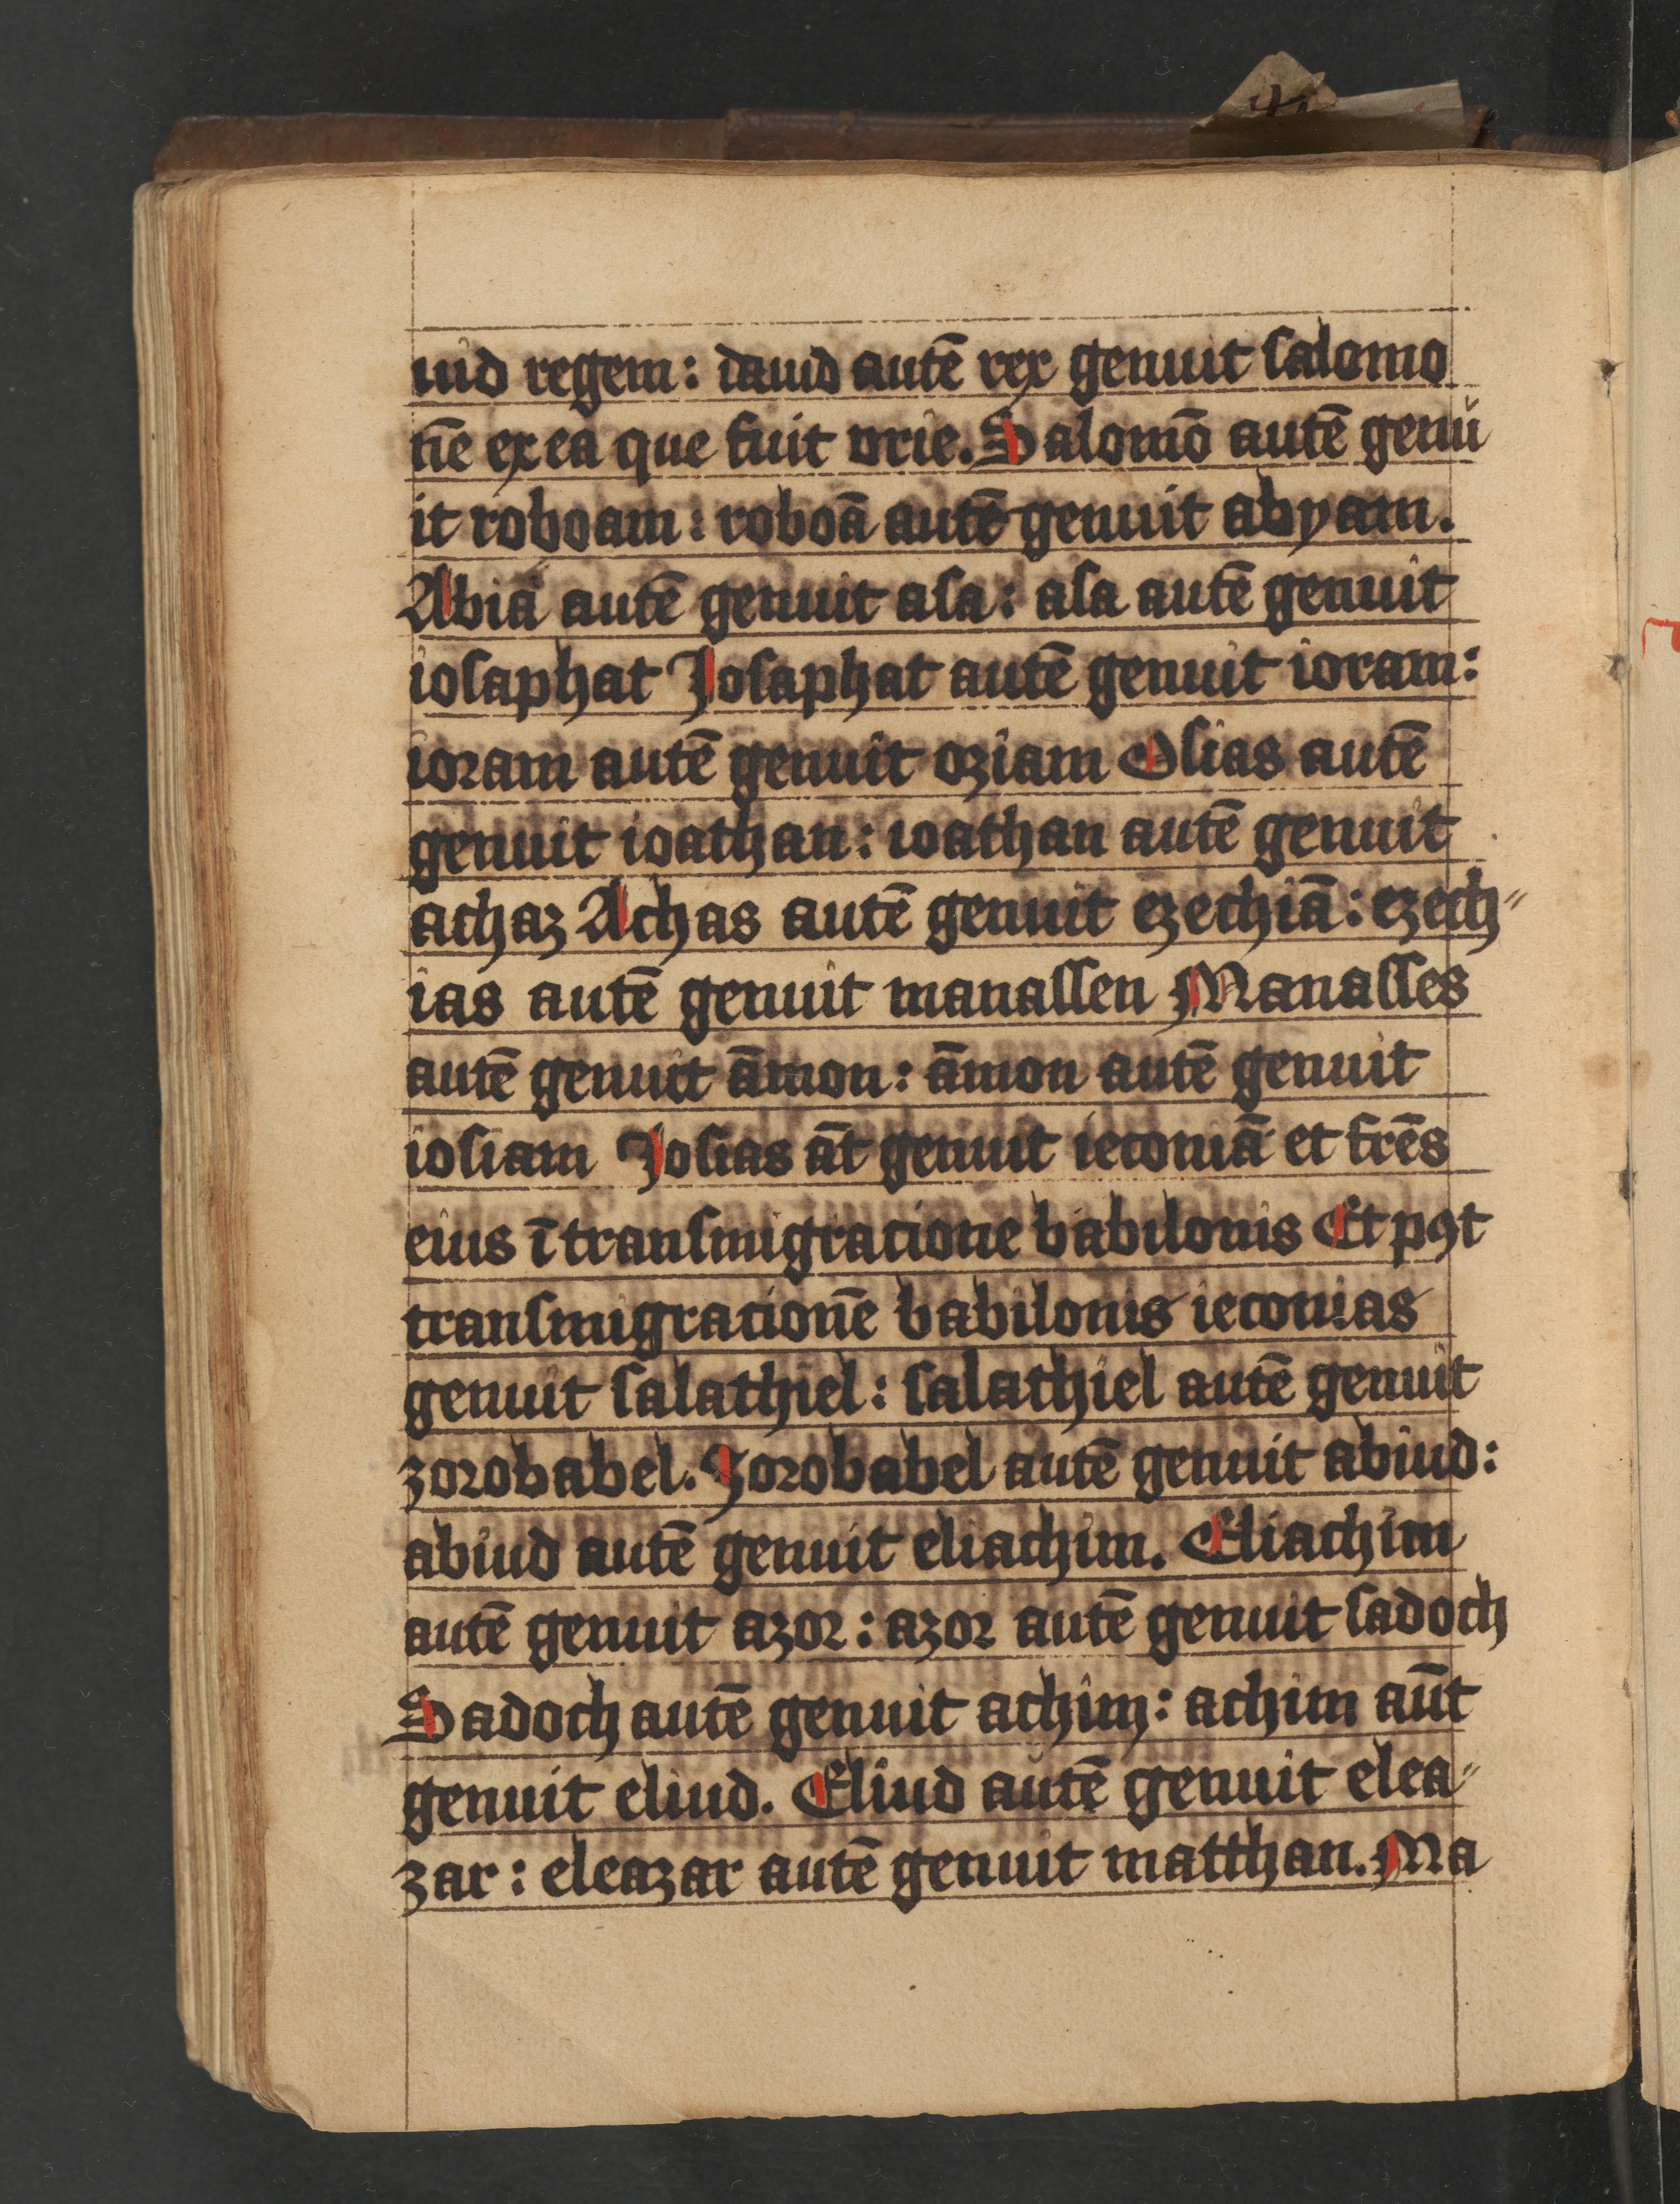 uid regem: dauid autē rex genuit salomo
nē ex ea que fuit vrie. Salomō autē genu
it roboam: roboā autē genuit abyam.
Abia autē genuit asa: asa autē genuit
iosaphat Josaphat autē genuit ioram:
ioram autē genuit oziam Osias autē
genuit ioathan: ioathan autē genuit
achaz Achas autē genuit ezechiā: ezech〃
ias autē genuit manassen Manasses
autē genuit āmon: āmon autē genuit
iosiam Josias āt genuit ieconiā et frēs
eius ī transmigracione babilonis Et pꝯt
transmigracionē babilonis ieconias
genuit salathiel: salathiel autē genuit
zorobabel. Zorobabel autē genuit abiud:
abiud autē genuit eliachim. Eliachim
autē genuit azor: azor autē genuit sadoch
Sadoch autē genuit achim: achim aūt
genuit eliud. Eliud autē genuit elea〃
zar: eleazar autē genuit matthan. Ma